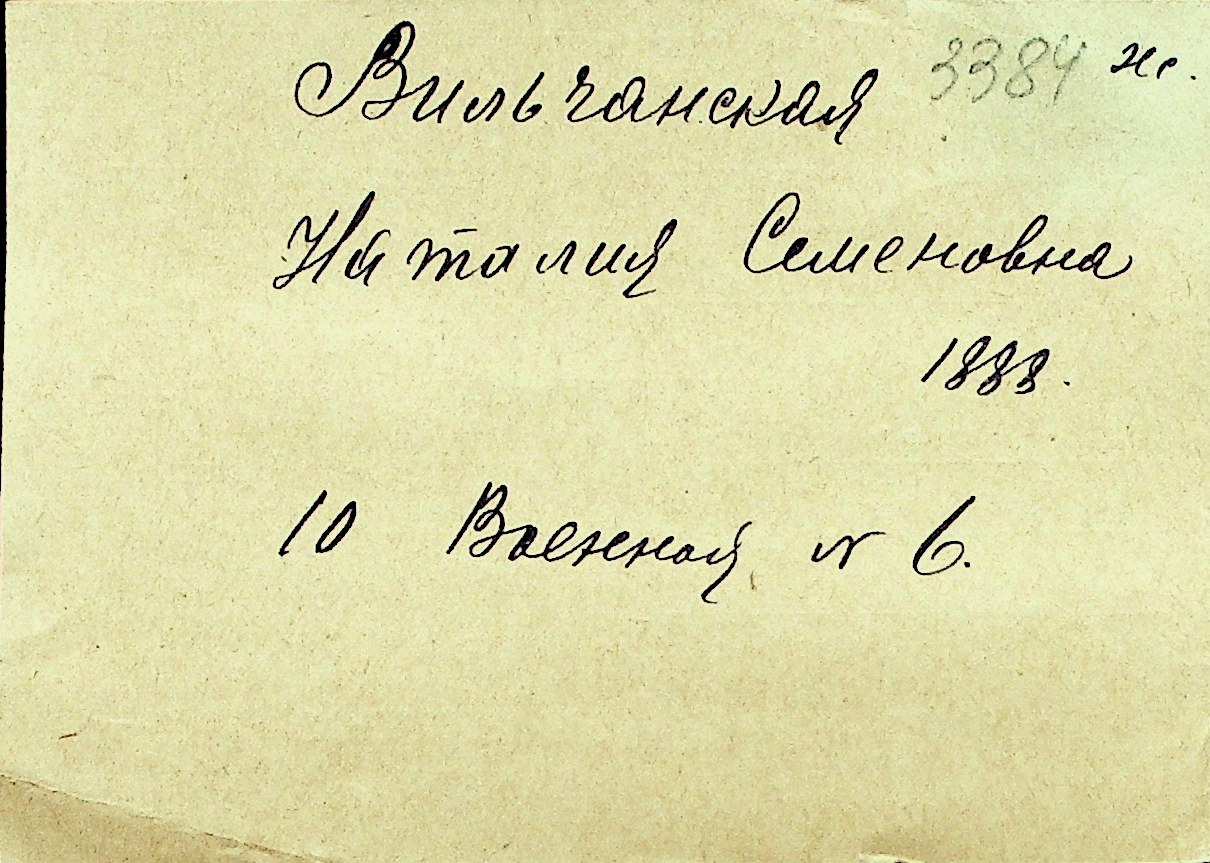 Вильчанская 3384 ж.
Наталия Семеновна
1888.
10 Военная N 6.